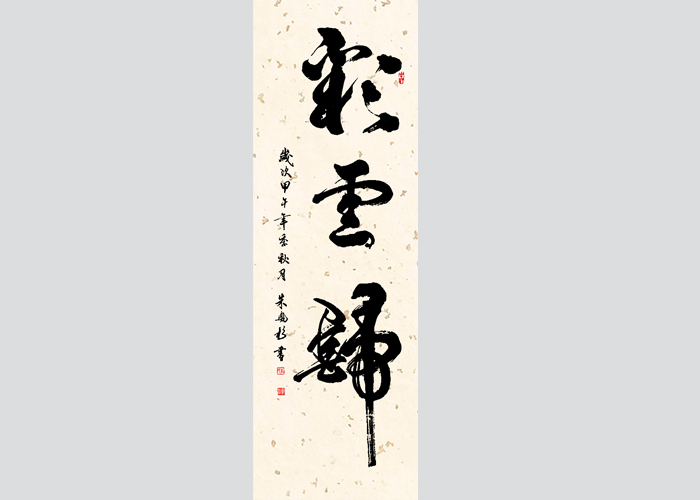 彩雲歸
歲次甲午年季秋月 朱
書